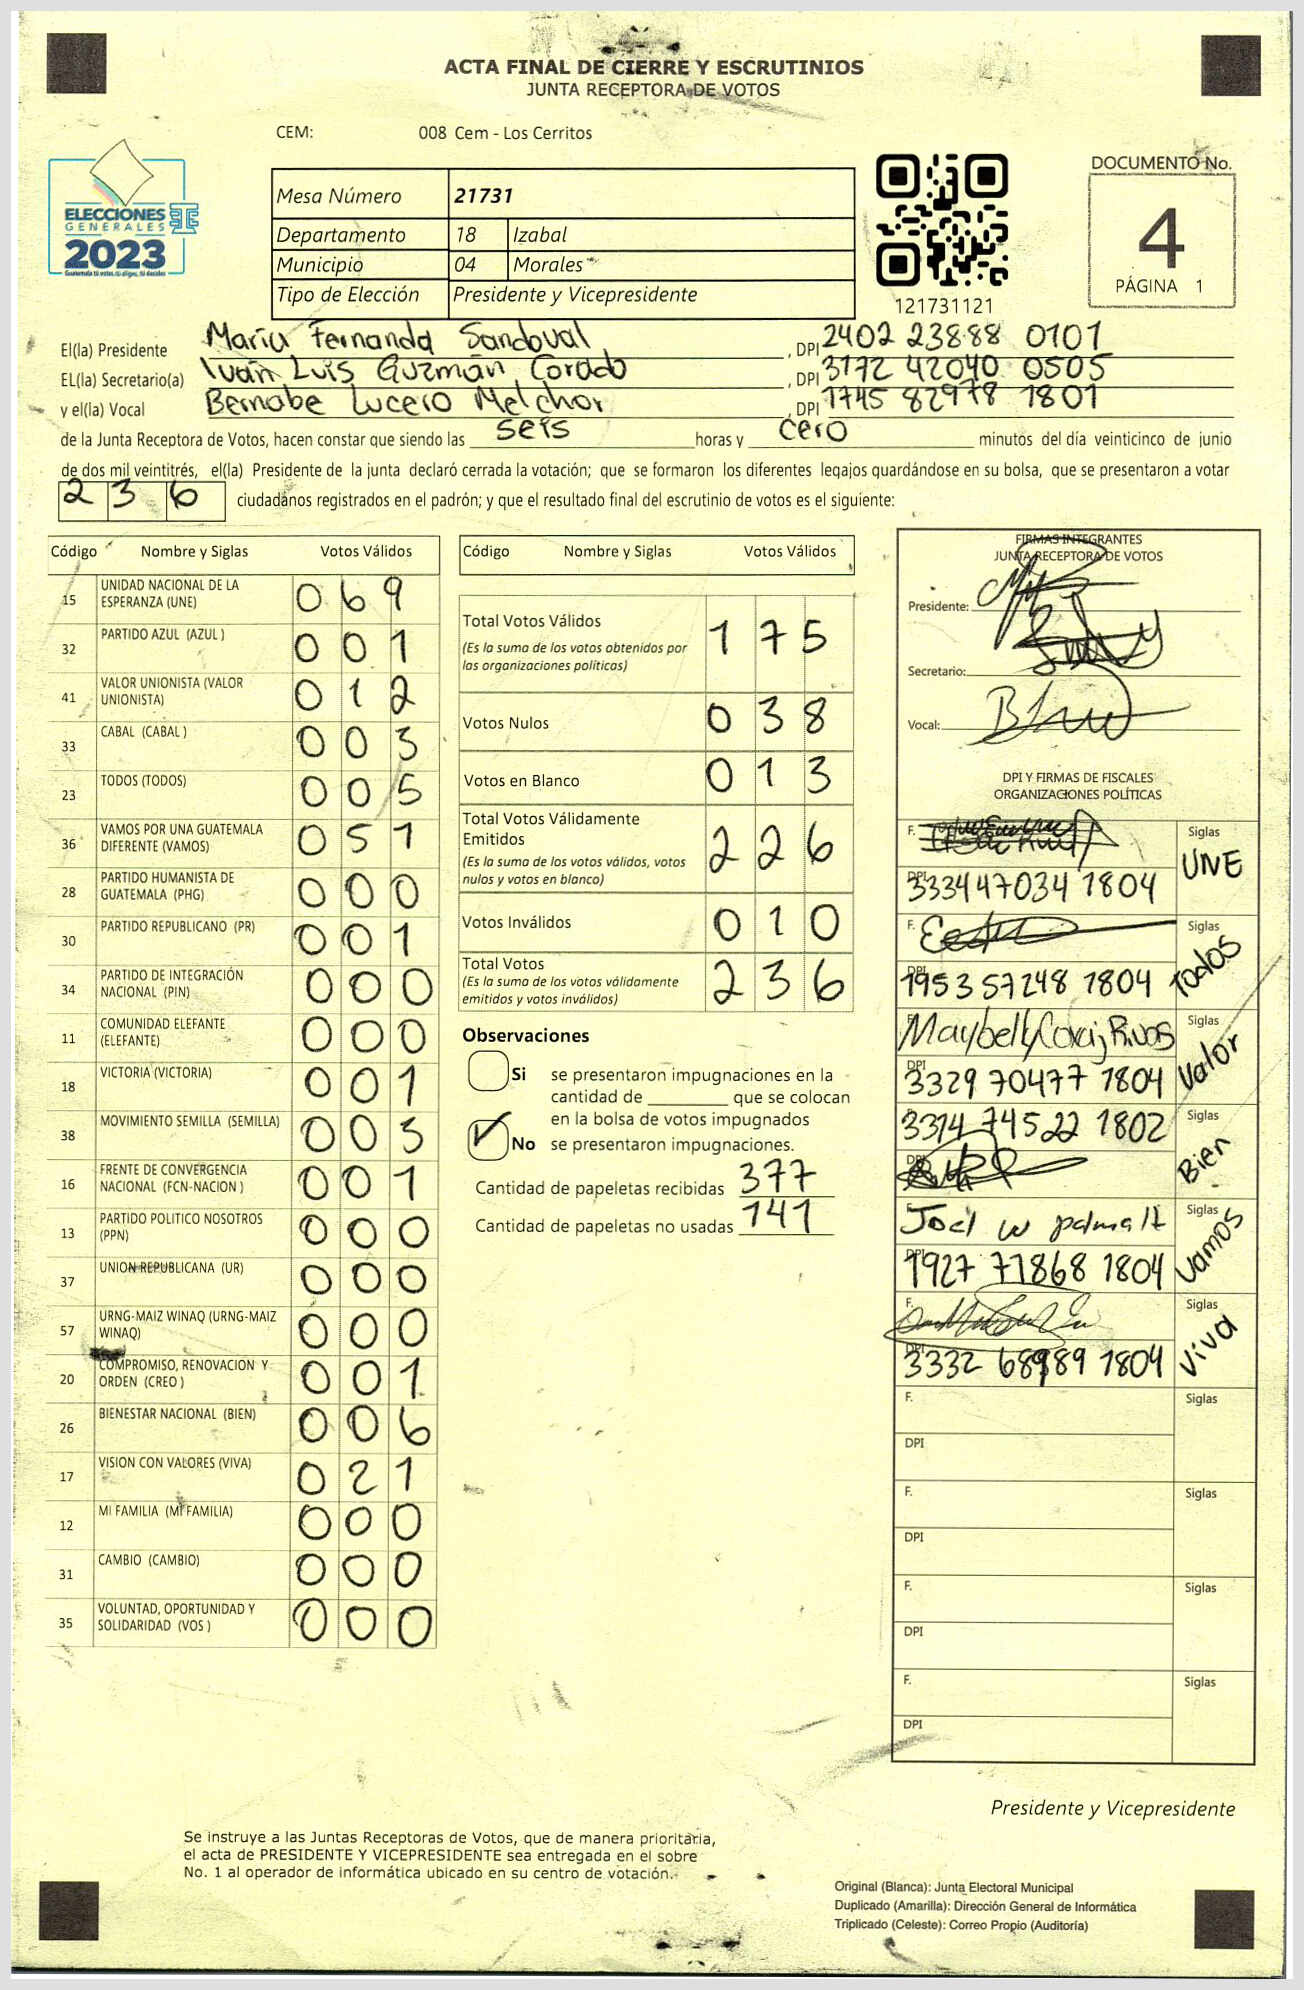 ACTA FINAL DE CIERRE Y ESCRUTINIOS
JUNTA RECEPTORA DE VOTOS
CEM: 008 Cem - Los Cerritos
ELECCIONES
GENERALES
2023
Guatemala tú votas, tú eliges, tú decides
Mesa Número 21731
Departamento 18 Izabal
Municipio 04 Morales
Tipo de Elección Presidente y Vicepresidente
121731121
DOCUMENTO No.
4
PÁGINA 1
El(la) Presidente María Fernanda Sandoval, DPI 2402 23888 0101
EL(la) Secretario(a) Iván Luis Guzmán Corado, DPI 3172 42040 0505
y el(la) Vocal Bernabe Lucero Melchor, DPI 1745 82978 1801
de la Junta Receptora de Votos, hacen constar que siendo las seis horas y cero minutos del día veinticinco de junio
de dos mil veintitrés, el(la) Presidente de la junta declaró cerrada la votación; que se formaron los diferentes legajos quardándose en su bolsa, que se presentaron a votar
236 ciudadanos registrados en el padrón; y que el resultado final del escrutinio de votos es el siguiente:
Código Nombre y Siglas Votos Válidos
15 UNIDAD NACIONAL DE LA ESPERANZA (UNE) 069
32 PARTIDO AZUL (AZUL ) 001
41 VALOR UNIONISTA (VALOR UNIONISTA) 012
33 CABAL (CABAL ) 003
23 TODOS (TODOS) 005
36 VAMOS POR UNA GUATEMALA DIFERENTE (VAMOS) 051
28 PARTIDO HUMANISTA DE GUATEMALA (PHG) 000
30 PARTIDO REPUBLICANO (PR) 001
34 PARTIDO DE INTEGRACIÓN NACIONAL (PIN) 000
11 COMUNIDAD ELEFANTE (ELEFANTE) 000
18 VICTORIA (VICTORIA) 001
38 MOVIMIENTO SEMILLA (SEMILLA) 003
16 FRENTE DE CONVERGENCIA NACIONAL (FCN-NACION ) 001
13 PARTIDO POLITICO NOSOTROS (PPN) 000
37 UNION REPUBLICANA (UR) 000
57 URNG-MAIZ WINAQ (URNG-MAIZ WINAQ) 000
20 COMPROMISO, RENOVACION Y ORDEN (CREO ) 001
26 BIENESTAR NACIONAL (BIEN) 006
17 VISION CON VALORES (VIVA) 021
12 MI FAMILIA (MI FAMILIA) 000
31 CAMBIO (CAMBIO) 000
35 VOLUNTAD, OPORTUNIDAD Y SOLIDARIDAD (VOS ) 000
Código Nombre y Siglas Votos Válidos
Total Votos Válidos 175
(Es la suma de los votos obtenidos por
las organizaciones politicas)
Votos Nulos 038
Votos en Blanco 013
Total Votos Válidamente
Emitidos 226
(Es la suma de los votos válidos, votos
nulos y votos en blanco)
Votos Inválidos 010
Total Votos 236
(Es la suma de los votos válidamente
emitidos y votos inválidos)
Observaciones
Si se presentaron impugnaciones en la
cantidad de ________ que se colocan
en la bolsa de votos impugnados
No se presentaron impugnaciones.
Cantidad de papeletas recibidas 377
Cantidad de papeletas no usadas 141
FIRMAS INTEGRANTES
JUNTA RECEPTORA DE VOTOS
Presidente:
Secretario:
Vocal:
DPI Y FIRMAS DE FISCALES
ORGANIZACIONES POLÍTICAS
F. Siglas UNE
DPI 3334 47034 1804
F. Siglas TODOS
DPI 1953 57248 1804
F. Maybelly Coraj Rivas Siglas Valor
DPI 3329 70477 1804
3314 74522 1802 Siglas Bien
DPI
F. Joel W palma Siglas Vamos
DPI 1927 71868 1804
F. Siglas Viva
DPI 3332 68989 1804
F. Siglas
DPI
F. Siglas
DPI
F. Siglas
DPI
F. Siglas
DPI
Presidente y Vicepresidente
Se instruye a las Juntas Receptoras de Votos, que de manera prioritaria,
el acta de PRESIDENTE Y VICEPRESIDENTE sea entregada en el sobre
No. 1 al operador de informática ubicado en su centro de votación.
Original (Blanca): Junta Electoral Municipal
Duplicado (Amarilla): Dirección General de Informática
Triplicado (Celeste): Correo Propio (Auditoría)